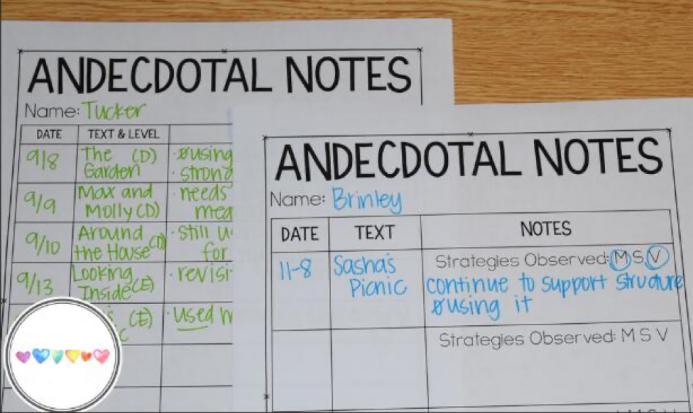 ANDECDOTAL NOTES
Name: Tucker
DATE TEXT & LEVEL
9/8 The (D) Garden
9/9 Max and Molly (D) needs
9/10 Around the House (D) still
for
9/13 Looking Inside (E)
(E) Used
ANDECDOTAL NOTES
Name: Brinley
DATE TEXT NOTES
11-8 Sasha's Picnic
Strategies Observed: M S V
continue to support structure
using it
Strategies Observed: M S V